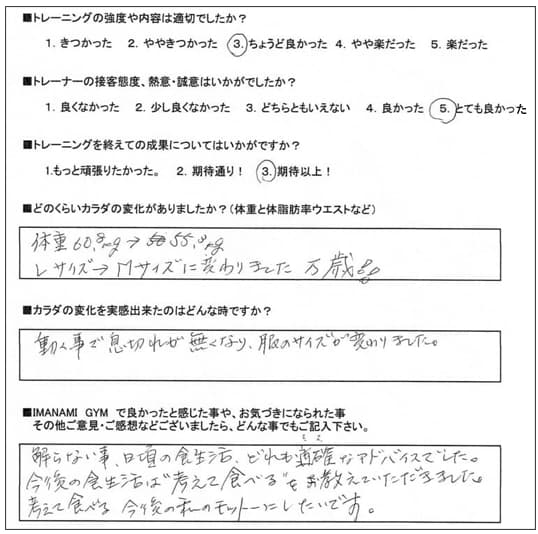 ■トレーニングの強度や内容は適切でしたか？
1. きつかった 2. ややきつかった 3. ちょうど良かった 4. やや楽だった 5. 楽だった
■トレーナーの接客態度、熱意・誠意はいかがでしたか？
1. 良くなかった 2. 少し良くなかった 3. どちらともいえない 4. 良かった 5. とても良かった
■トレーニングを終えての成果についてはいかがですか？
1.もっと頑張りたかった。 2. 期待通り！ 3. 期待以上！
■どのくらいカラダの変化がありましたか？(体重と体脂肪率ウエストなど)
体重60.8kg→ 55.8kg
Lサイズ→Mサイズに変わりました 万歳
■カラダの変化を実感出来たのはどんな時ですか？
動く事で息切れが無くなり、服のサイズが変わりました。
■IMANAMI GYM で良かったと感じた事や、お気づきになられた事
その他ご意見・ご感想などございましたら、どんな事でもご記入下さい。
解らない事、日頃の食生活、どれも適確なアドバイスでした。
今後の食生活は"考えて食べる"をお教えていただきました。
考えて食べる 今後の私のモットーにしたいです。